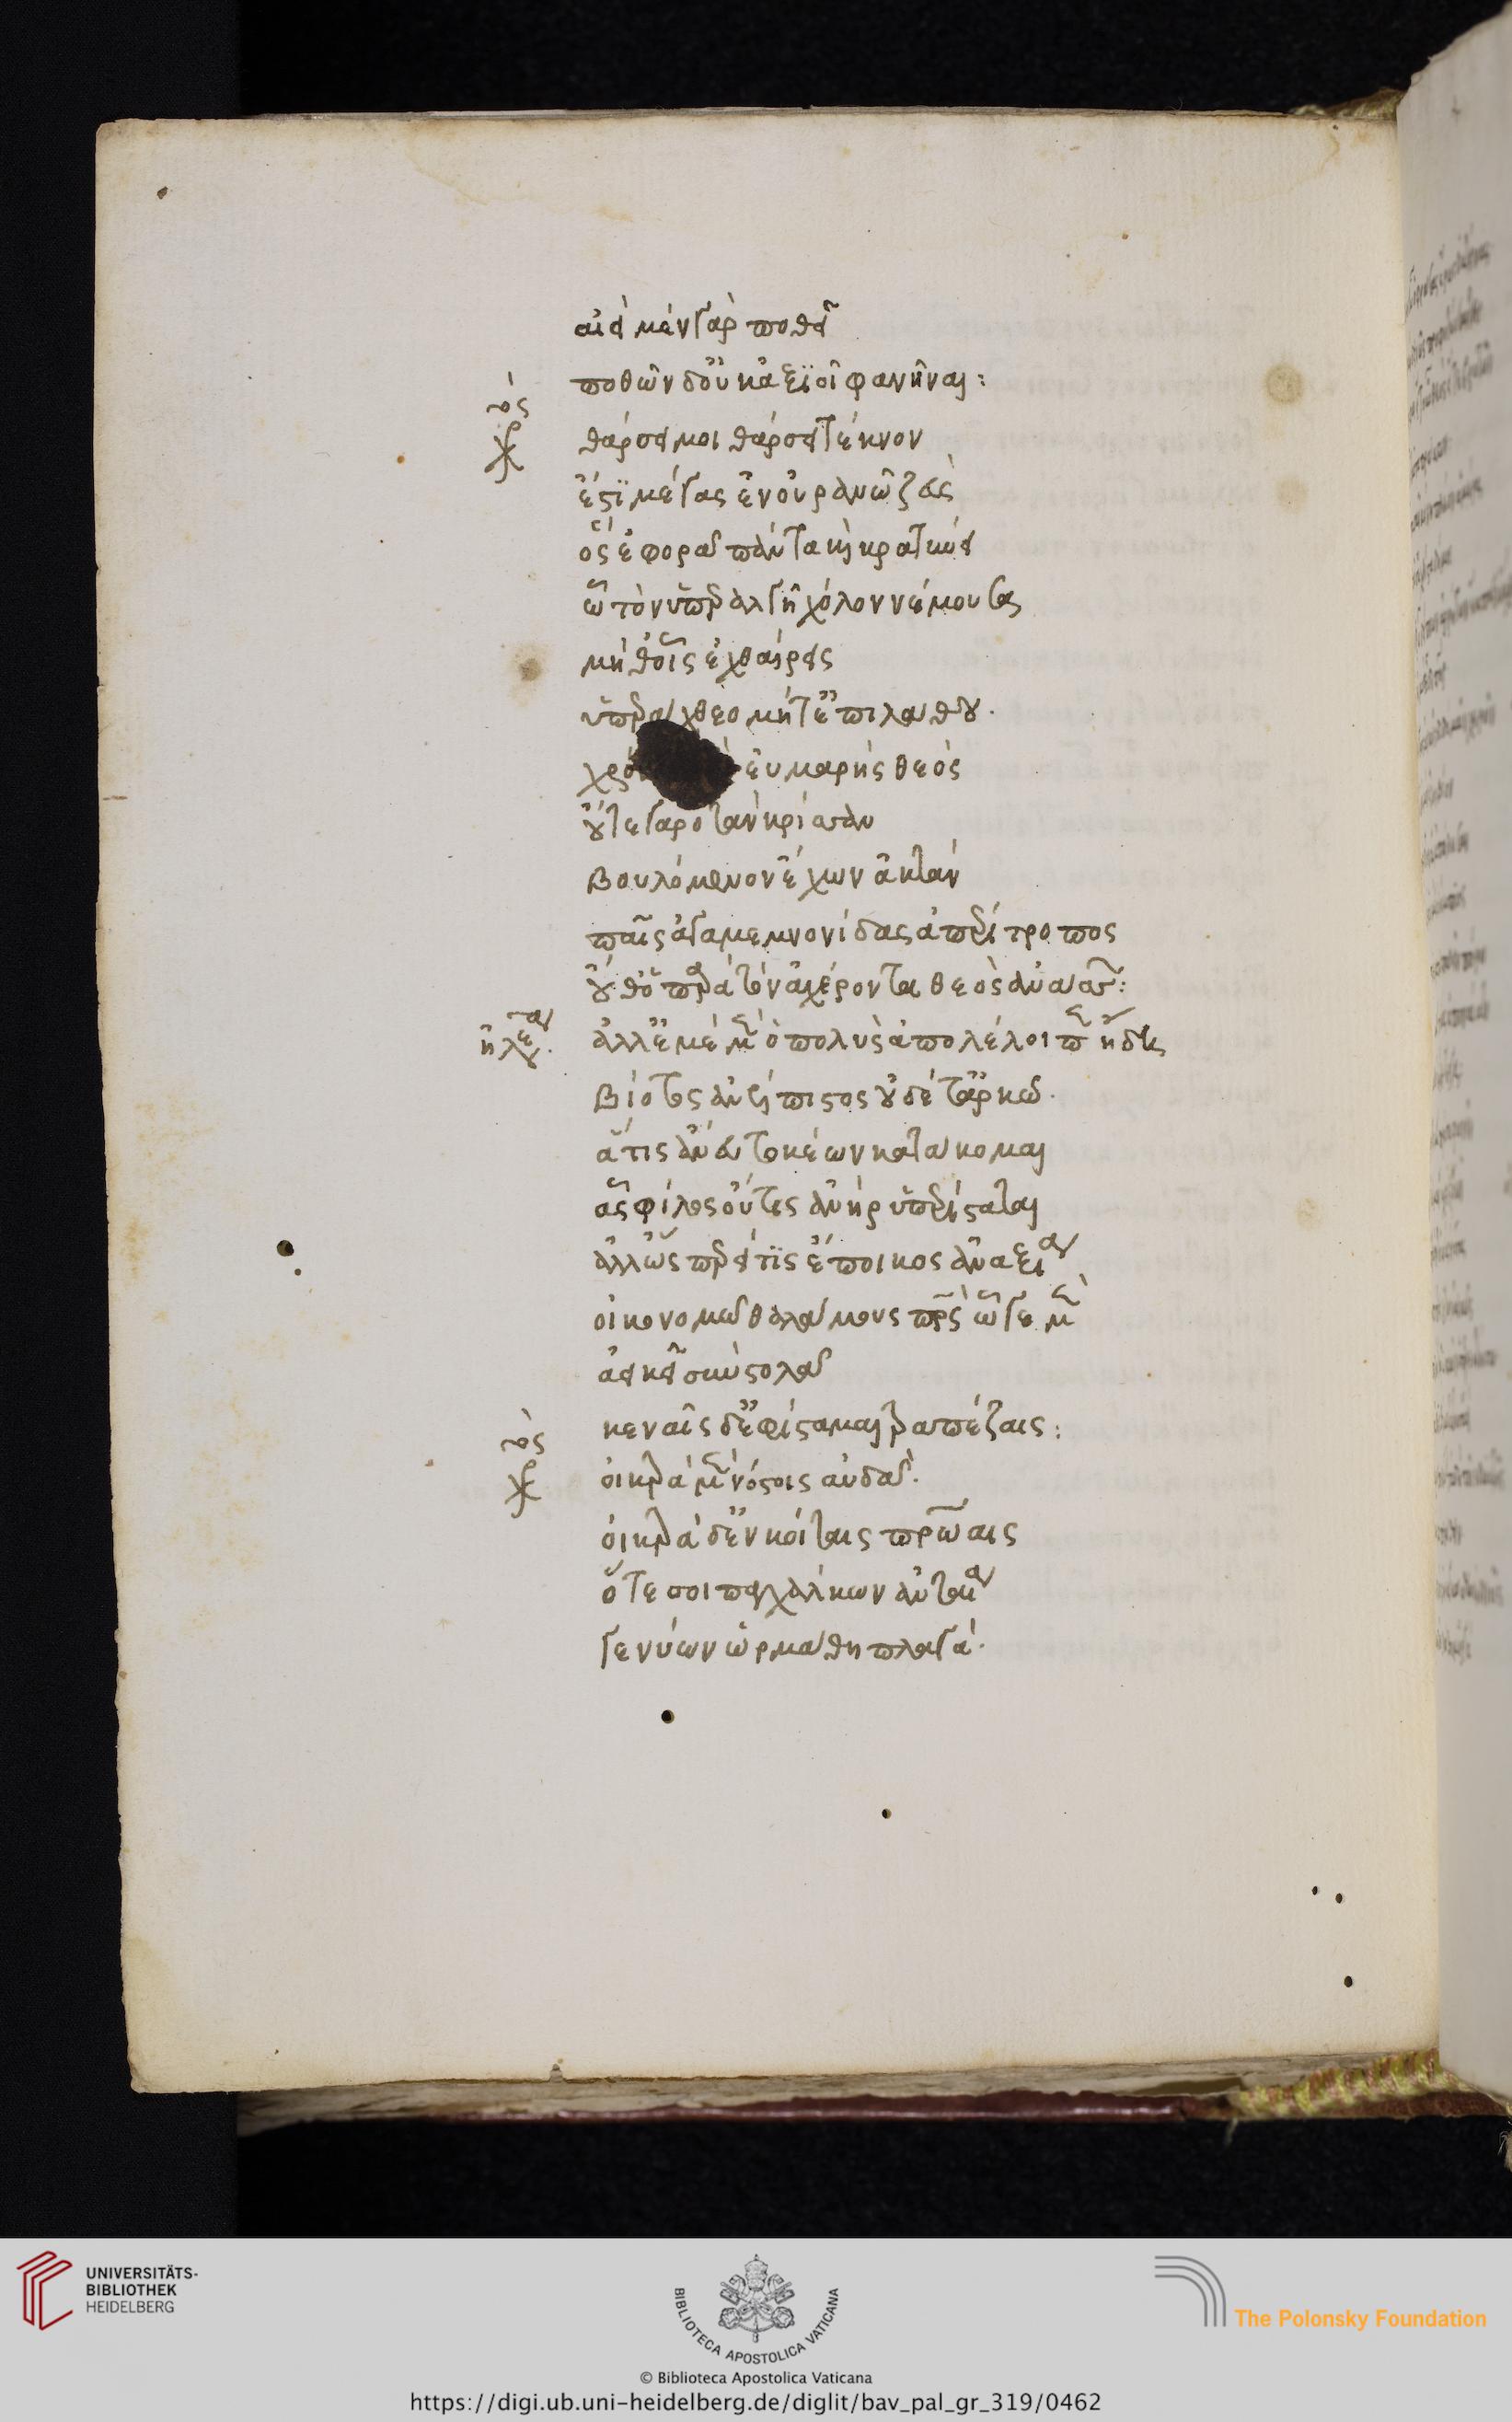 αἰεὶ μὲν γὰρ ποθεῖ
ποθῶν δ' οὐκ ἀξιοῖ φανῆναι:
χορὸς θάρσει μοι θάρσει τέκνον
ἔστι μέγας ἐν οὐρανῷ ζεὺς
ὃς ἐφορᾷ πάντα καὶ κρατύνει
ᾧ τὸν ὑπεραλγῆ χόλον νέμουσα
μήθ' οἷς ἐχθαίρεις
ὑπεράχθεο μήτ' ἐπιλάθου.
εὐμαρὴς θεός
οὔτε γαρ ὁ τὰν κρίσαν
βουλόμενον ἔχων ἀκτάν
παῖς ἀγαμεμνονίδας ἀπερίτροπος
οὔθ' ὁ παρὰ τὸν ἀχέροντα θεὸς ἀνάσσων:
ἠλέκτρα ἀλλ' ἐμὲ μὲν ὁ πολὺς ἀπολέλοιπεν ἤδη
βίοτος ἀνέλπιστος οὐδέ τ' ἀρκῶ.
ἅτις ἄνευ τοκέων κατατάκομαι
ἇς φίλος οὔτις ἀνὴρ ὑπερίσταται
ἀλλ' ὡσπερεί τις ἔποικος ἀναξία
οἰκονομῶ θαλάμους πατρὸς ὧδε μὲν
ἀεικεῖ σὺν στολᾷ
κεναῖς δ' ἐφίσταμαι τραπέζαις:
χορὸς οἰκτρὰ μὲν νόστοις αὐδά.
οἰκτρὰ δ' ἐν κοίταις πατρῴαις
ὅτε σοι παγχάλκων ἀνταία
γενύων ὡρμάθη πλαγά.
UNIVERSITÄTS-
BIBLIOTHEK
HEIDELBERG
BIBLIOTECA APOSTOLICA VATICANA
The Polonsky Foundation
© Biblioteca Apostolica Vaticana
https://digi.ub.uni-heidelberg.de/diglit/bav_pal_gr_319/0462